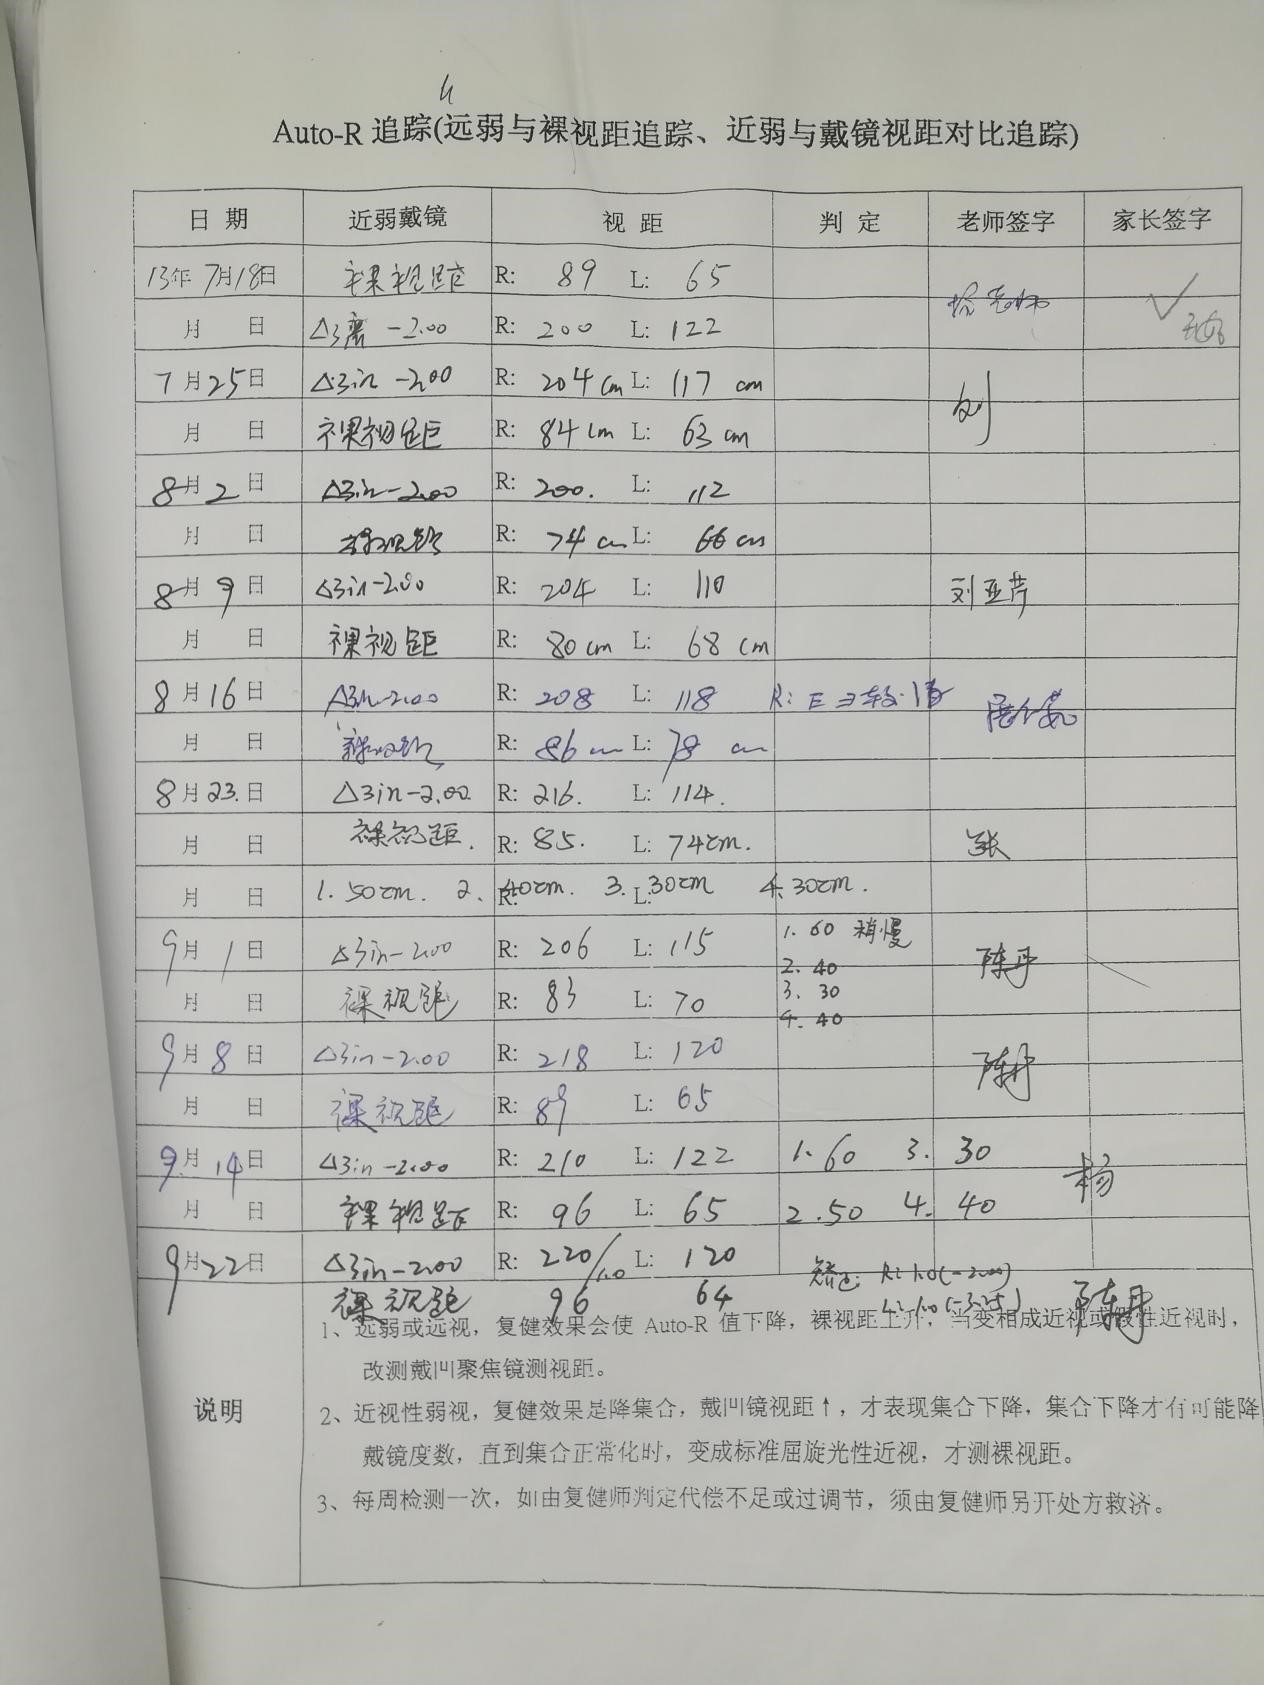 Auto-R 追踪(远弱与裸视距追踪、近弱与戴镜视距对比追踪)
日 期 近弱戴镜 视 距 判 定 老师签字 家长签字
13年 7月18日 裸视距 R: 89 L: 65
月 日 △3离 -2.00 R: 200 L: 122
7月25日 △3in -2.00 R: 204cm L: 117 cm 刘
月 日 裸视距 R: 84cm L: 63cm
8月2日 △3in-2.00 R: 200. L: 112
月 日 裸视距 R: 74cm L: 66cm
8月9日 △3in-2.00 R: 204 L: 110 刘亚芹
月 日 裸视距 R: 80cm L: 68cm
8月16日 △3in-2.00 R: 208 L: 118 R: E ヨ较慢
月 日 裸视距 R: 86cm L: 78 cm
8月23.日 △3in-2.00. R: 216. L: 114.
月 日 裸视距. R: 85. L: 74cm. 张
月 日 1. 50cm. 2. 40cm. 3. 30cm 4. 30cm. R: L:
9月1日 △3in-2.00 R: 206 L: 115 1. 60 稍慢 陈丹
2. 40
月 日 裸视距 R: 83 L: 70 3. 30
4. 40
9月8日 △3in-2.00 R: 218 L: 120 陈丹
月 日 裸视距 R: 89 L: 65
9月14日 △3in-2.00 R: 210 L: 122 1. 60 3. 30 杨
月 日 裸视距 R: 96 L: 65 2. 50 4. 40
9月22日 △3in-2.00 R: 220/1.0 L: 120 矫正: R: 1.0(-2.00)
裸视距 96 64 L: 1.0(-3.25) 陈丹
说明
1、远弱或远视，复健效果会使 Auto-R 值下降，裸视距上升，当变相成近视或假性近视时，
改测戴凹聚焦镜测视距。
2、近视性弱视，复健效果是降集合，戴凹镜视距↑，才表现集合下降，集合下降才有可能降
戴镜度数，直到集合正常化时，变成标准屈旋光性近视，才测裸视距。
3、每周检测一次，如由复健师判定代偿不足或过调节，须由复健师另开处方救济。